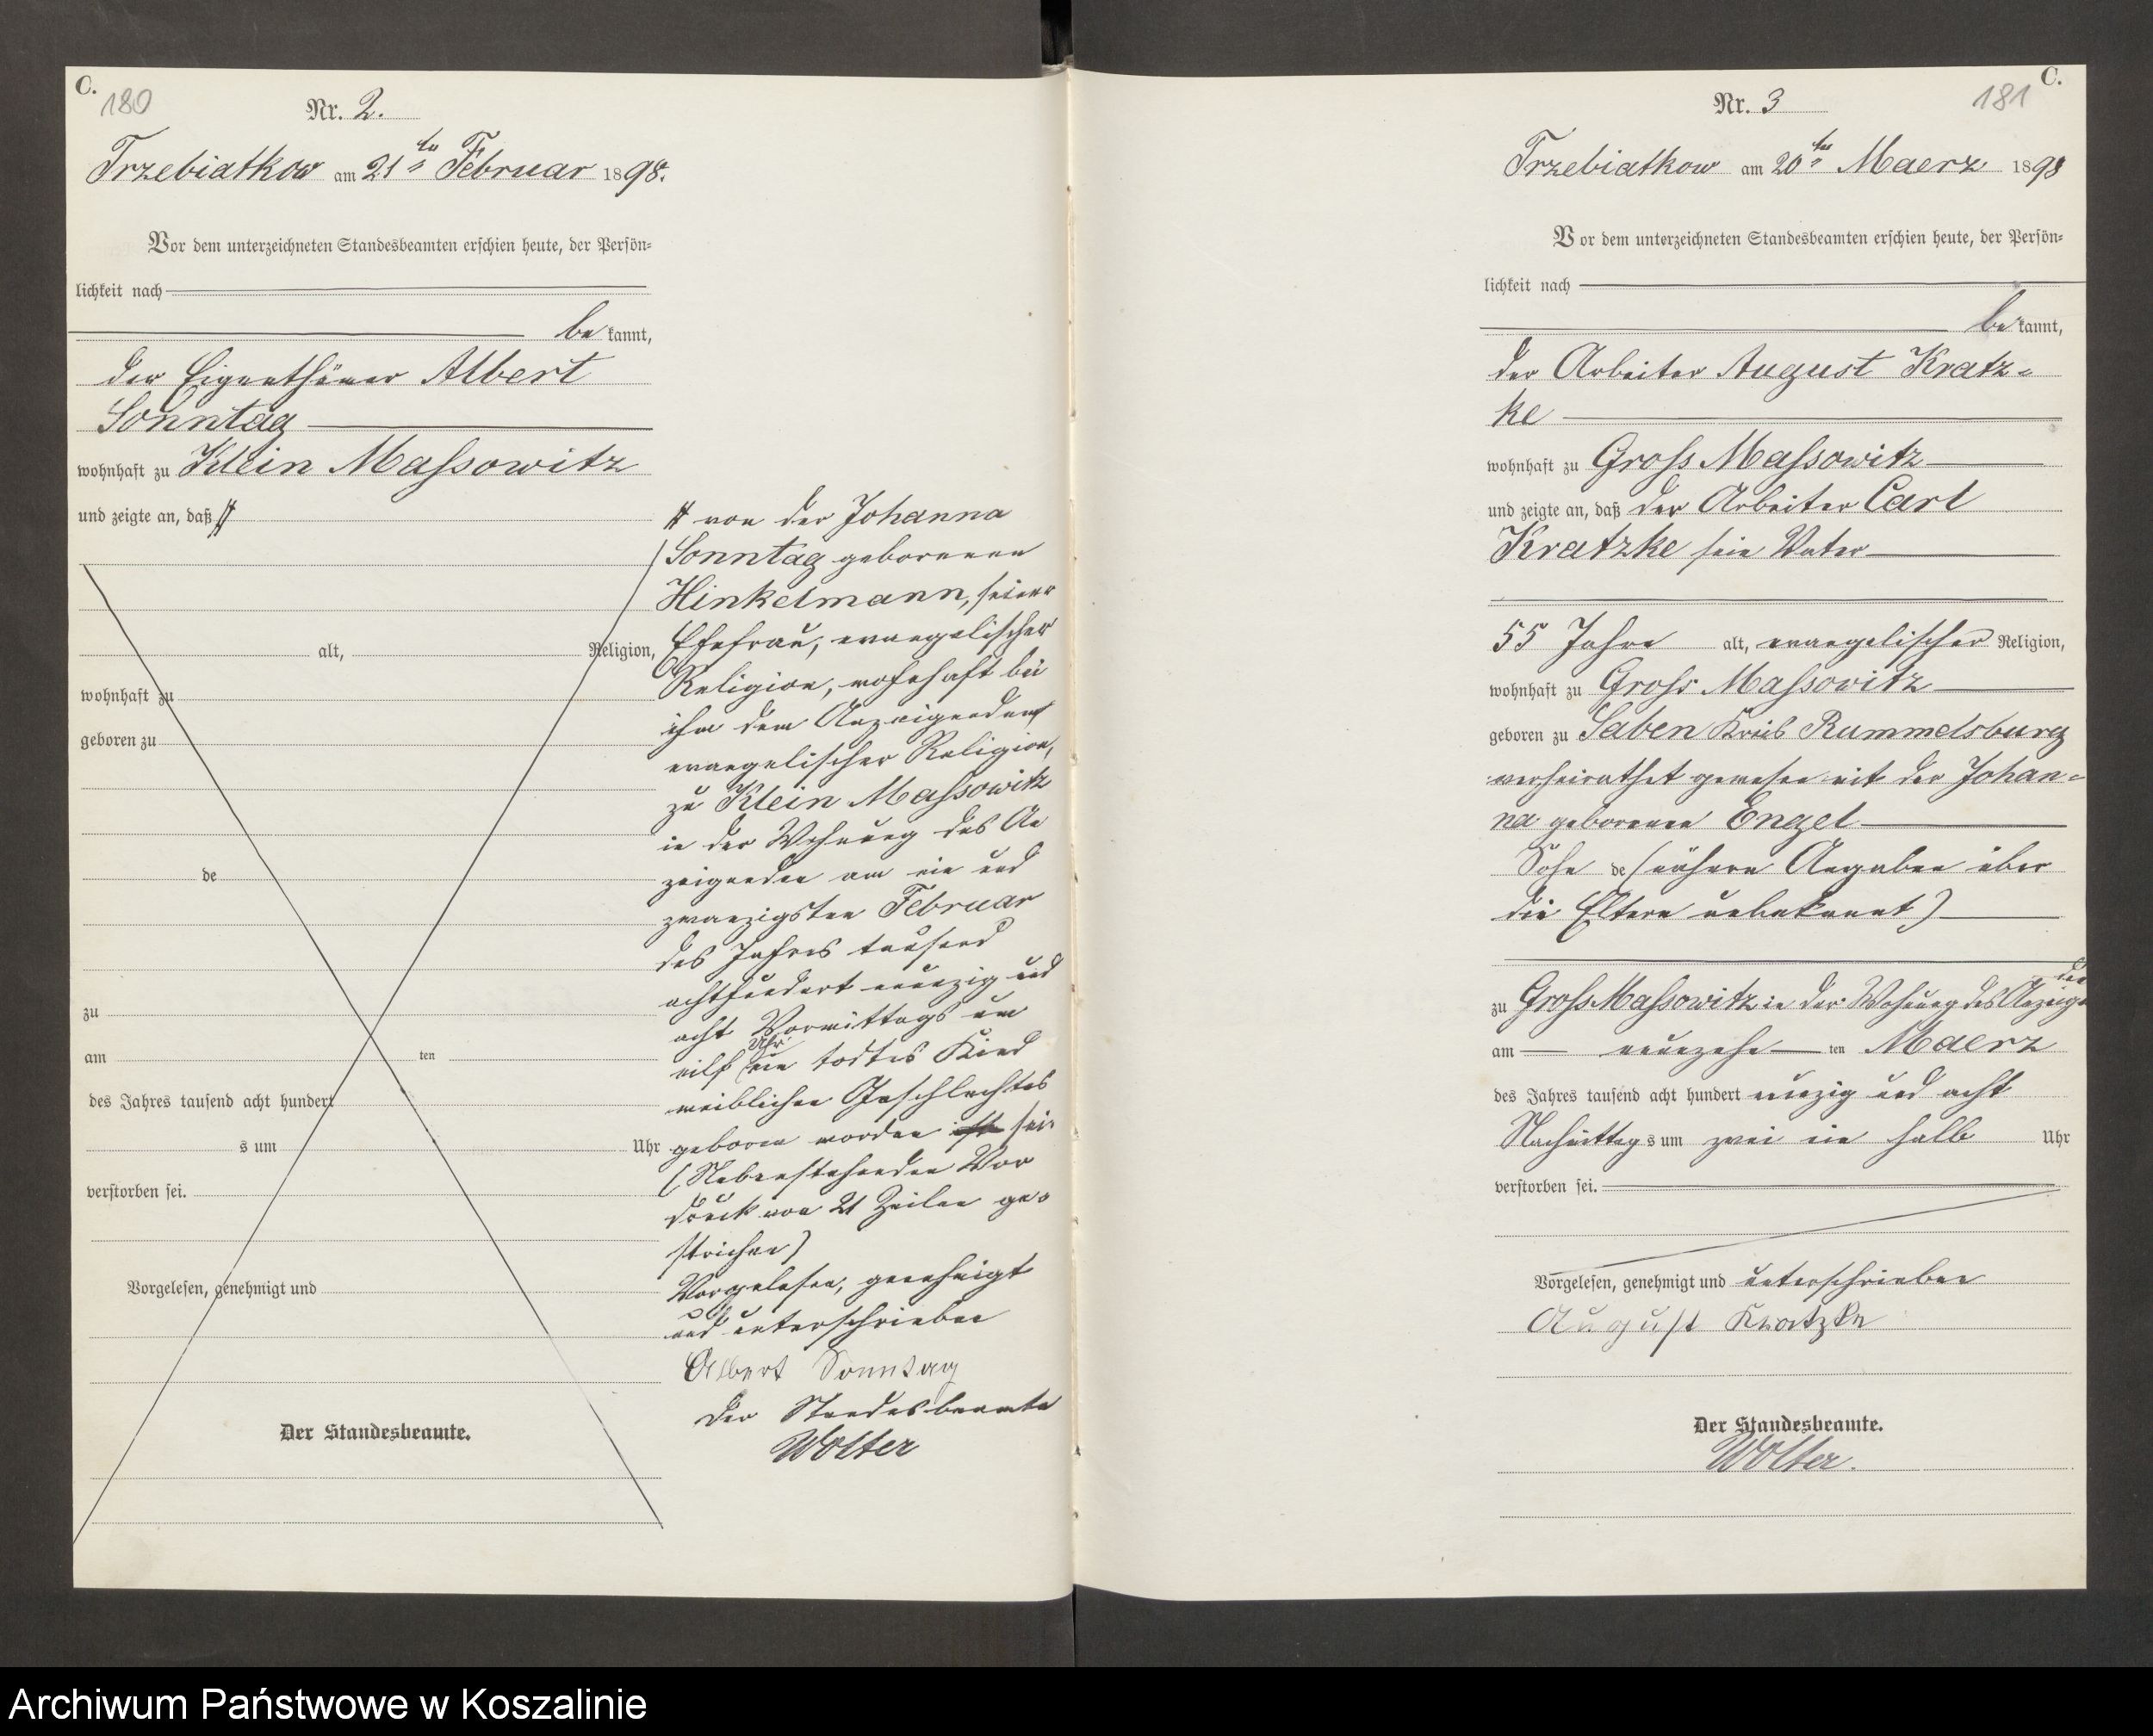 C.
180
Nr. 2.
Trzebiatkow am 21ten Februar 1898.
Vor dem unterzeichneten Standesbeamten erschien heute, der Persön=
lichkeit nach
be kannt,
der Eigenthümer Albert
Sonntag
wohnhaft zu Klein Massowitz
und zeigte an, daß #
alt, Religion,
wohnhaft zu
geboren zu
de
zu
am ten
des Jahres tausend acht hundert
s um Uhr
verstorben sei.
Vorgelesen, genehmigt und
Der Standesbeamte.
# von der Johanna
Sonntag geborenen
Hinkelmann, seiner
Ehefrau, evangelischer
Religion, wohnhaft bei
ihm dem Anzeigenden
evangelischer Religion,
zu Klein Massowitz
in der Wohnung des An
zeigenden am ein und
zwanzigsten Februar
des Jahres tausend
achthundert neunzig und
acht Vormittags um
eilf Uhr ein todtes Kind
weiblichen Geschlechtes
geboren worden ist sei
(Nebenstehenden Vor
druck von 21 Zeilen ge=
strichen)
Vorgelesen, genehmigt
und unterschrieben
Albert Sonntag
Der Standesbeamte
Wolter
C.
181
Nr. 3
Trzebiatkow am 20ten Maerz 1898
Vor dem unterzeichneten Standesbeamten erschien heute, der Persön=
lichkeit nach
be kannt,
der Arbeiter August Kratz=
ke
wohnhaft zu Gross Massowitz
und zeigte an, daß der Arbeiter Carl
Kratzke sein Vater
55 Jahre alt, evangelischer Religion,
wohnhaft zu Gross Massowitz
geboren zu Saben Kreis Rummelsburg
verheirathet gewesen mit der Johan=
na geborenen Engel
Sohn de (nähere Angaben über
die Eltern unbekannt)
zu Gross Massowitz in der Wohnung des Anzeigenden
am neunzehn ten Maerz
des Jahres tausend acht hundert neunzig und acht
Nachmittags um zwei ein halb Uhr
verstorben sei.
Vorgelesen, genehmigt und unterschrieben
August Kratzke
Der Standesbeamte.
Wolter.
Archiwum Państwowe w Koszalinie